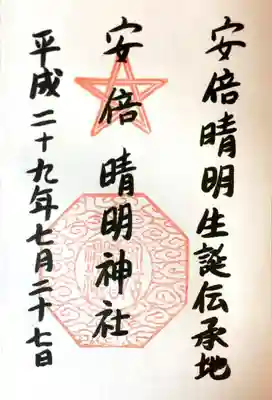 安倍晴明生誕伝承地
安倍晴明神社
平成二十九年七月二十七日